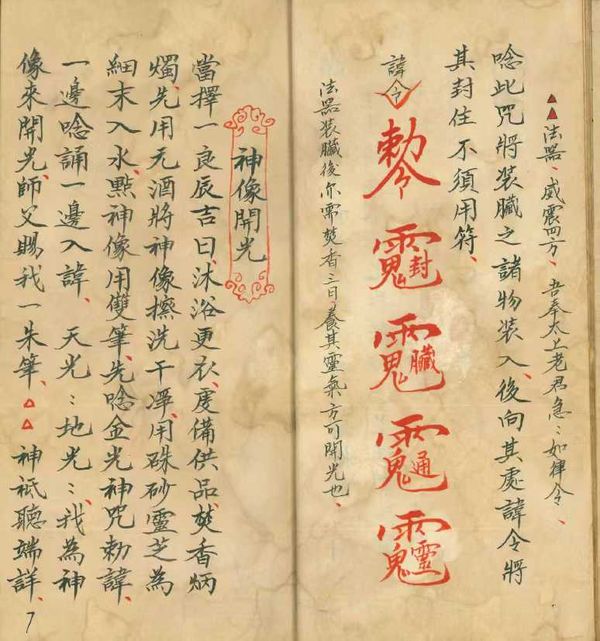 法器、威震四方、吾奉太上老君急:如律令、
唸此咒將装臟之諸物装入、後向其處諱令將
其封住不須用符、
諱令
勅令
封
臟
通
靈
法器装臟後你需焚香三日、養其靈氣方可開光也、
神像開光
當擇一良辰吉日、沐浴更衣、度備供品、焚香炳
燭、先用元酒將神像擦洗干凈、用硃砂靈芝為
細末入水、點神像用雙筆、先唸金光神咒勅諱、
一邊唸誦一邊入諱、天光:地光:、我為神
像來開光、師父賜我一朱筆、神祇聽端詳、
7